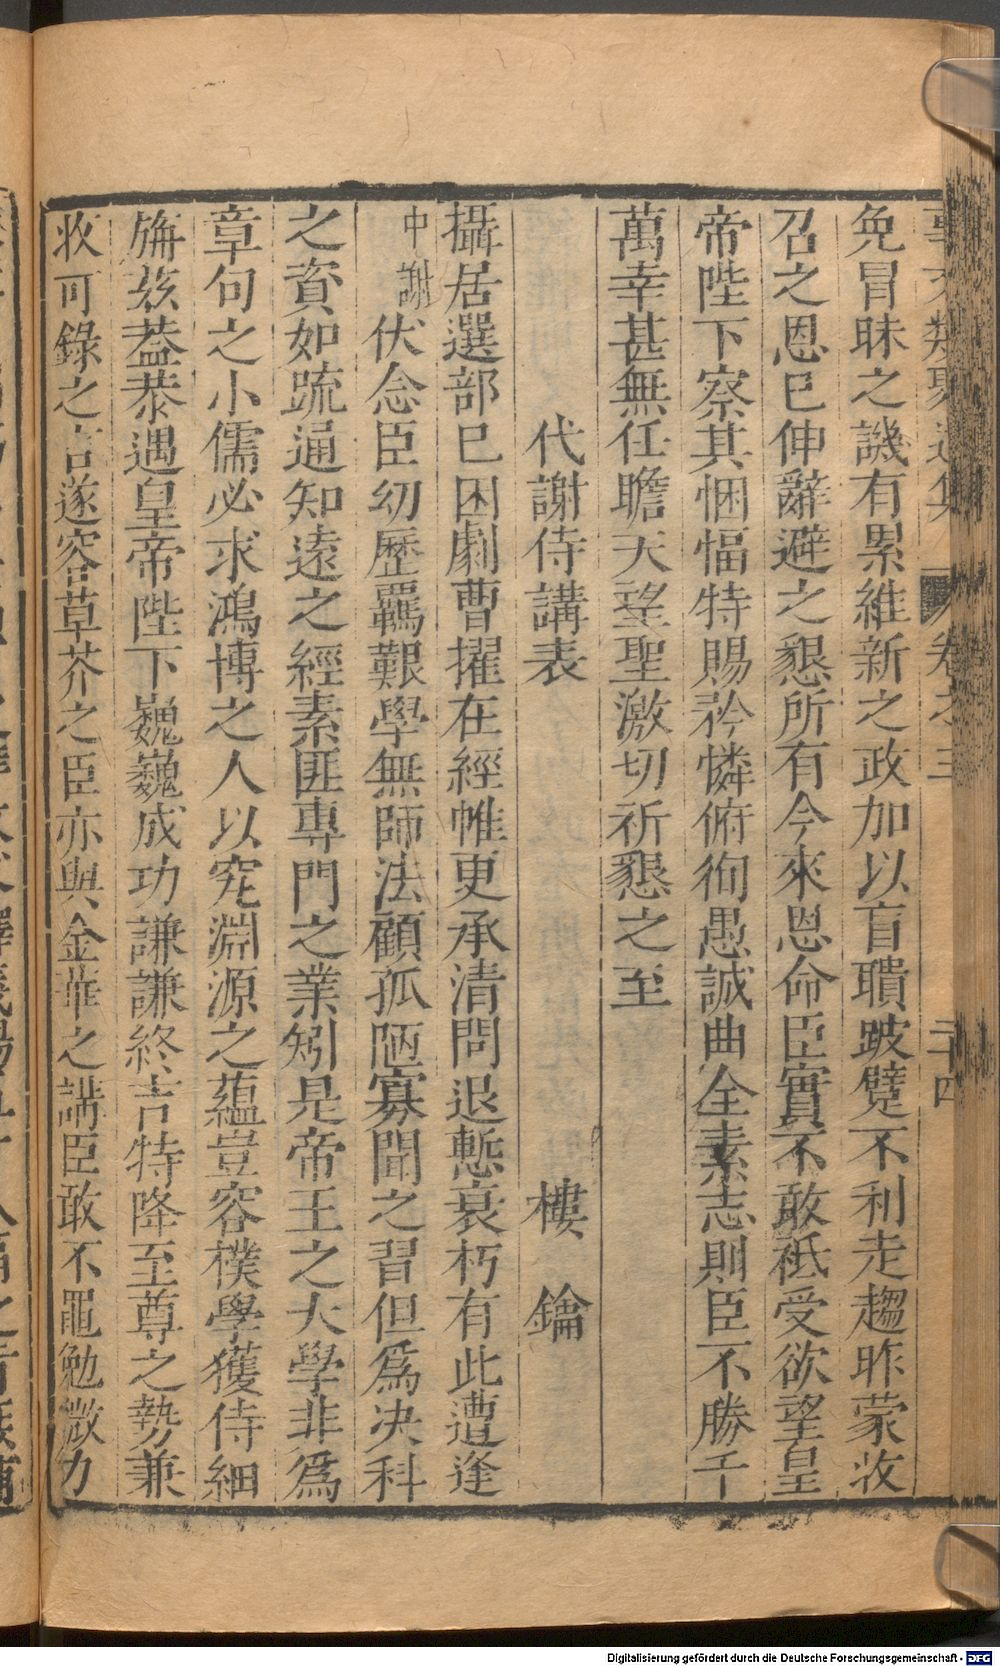 卷之三　二十四
免冒昧之譏有累維新之政加以盲聵跛躄不利走趨昨蒙收
召之恩已伸辭避之懇所有今來恩命臣實不敢祗受欲望皇
帝陛下察其悃愊特賜矜憐俯徇愚誠曲全素志則臣不勝千
萬幸甚無任瞻天望聖激切祈懇之至
代謝侍講表　樓　鑰
攝居選部已困劇曹擢在經帷更承清問退慙衰朽有此遭逢
中謝伏念臣幼歷羈艱學無師法顧孤陋寡聞之習但爲决科
之資如疏通知遠之經素匪專門之業矧是帝王之大學非爲
章句之小儒必求鴻博之人以究淵源之蘊豈容樸學獲侍細
旃茲葢恭遇皇帝陛下巍巍成功謙謙終吉特降至尊之勢兼
收可錄之言遂容草芥之臣亦與金華之講臣敢不黽勉微力
Digitalisierung gefördert durch die Deutsche Forschungsgemeinschaft - DFG